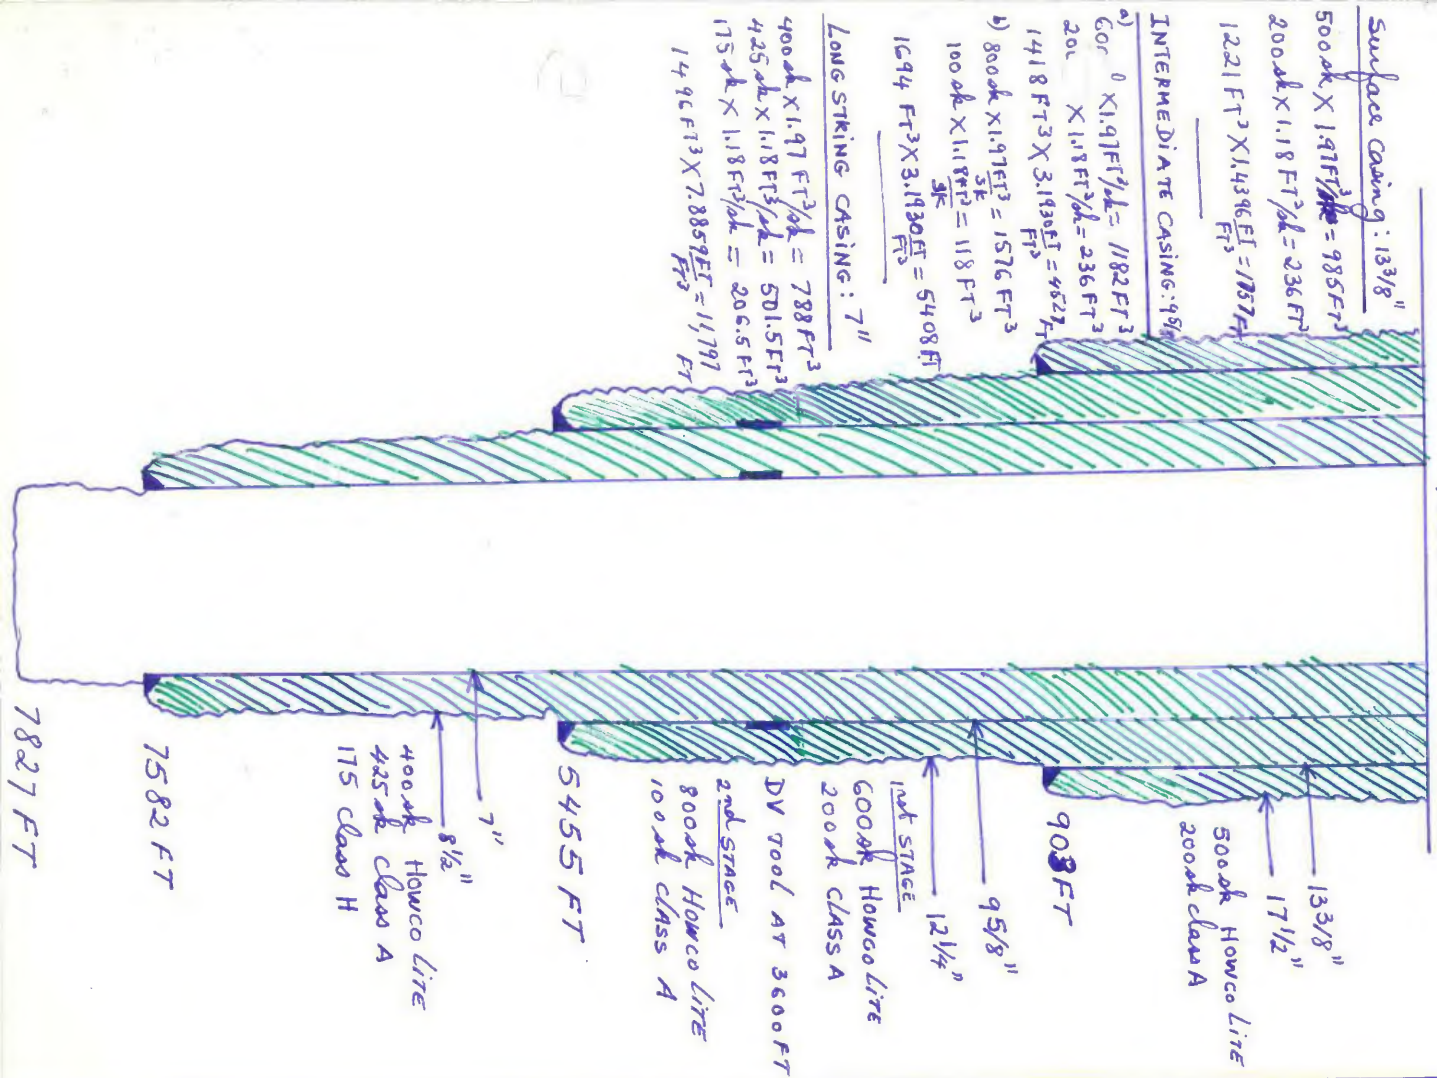 Surface casing: 13 3/8"
500sk X 1.97FT³/sk = 985FT³
200sk X 1.18FT³/sk = 236FT³
1221FT³ X 1.4396 FT/FT³ = 1757FT
INTERMEDIATE CASING: 9 5/8
a)
X 1.97FT³/sk = 1182FT³
X 1.18FT³/sk = 236FT³
1418FT³ X 3.1930 FT/FT³ = 4527 FT
b) 800sk X 1.97 FT³/SK = 1576 FT³
100sk X 1.18 FT³/SK = 118 FT³
1694 FT³ X 3.1930 FT/FT³ = 5408 FT
LONGSTRING CASING: 7"
400sk X 1.97 FT³/sk = 788FT³
425sk X 1.18FT³/sk = 501.5FT³
175sk X 1.18FT³/sk = 206.5FT³
1496FT³ X 7.8859 FT/FT³ = 11,797 FT
13 3/8"
17 1/2"
500sk Howco Lite
200sk class A
903FT
9 5/8"
12 1/4"
1st STAGE
600sk Howco Lite
200sk CLASS A
DV TOOL AT 3600FT
2nd STAGE
800sk Howco Lite
100sk CLASS A
5455 FT
7"
8 1/2"
400sk Howco Lite
425sk Class A
175 Class H
7582 FT
7827 FT